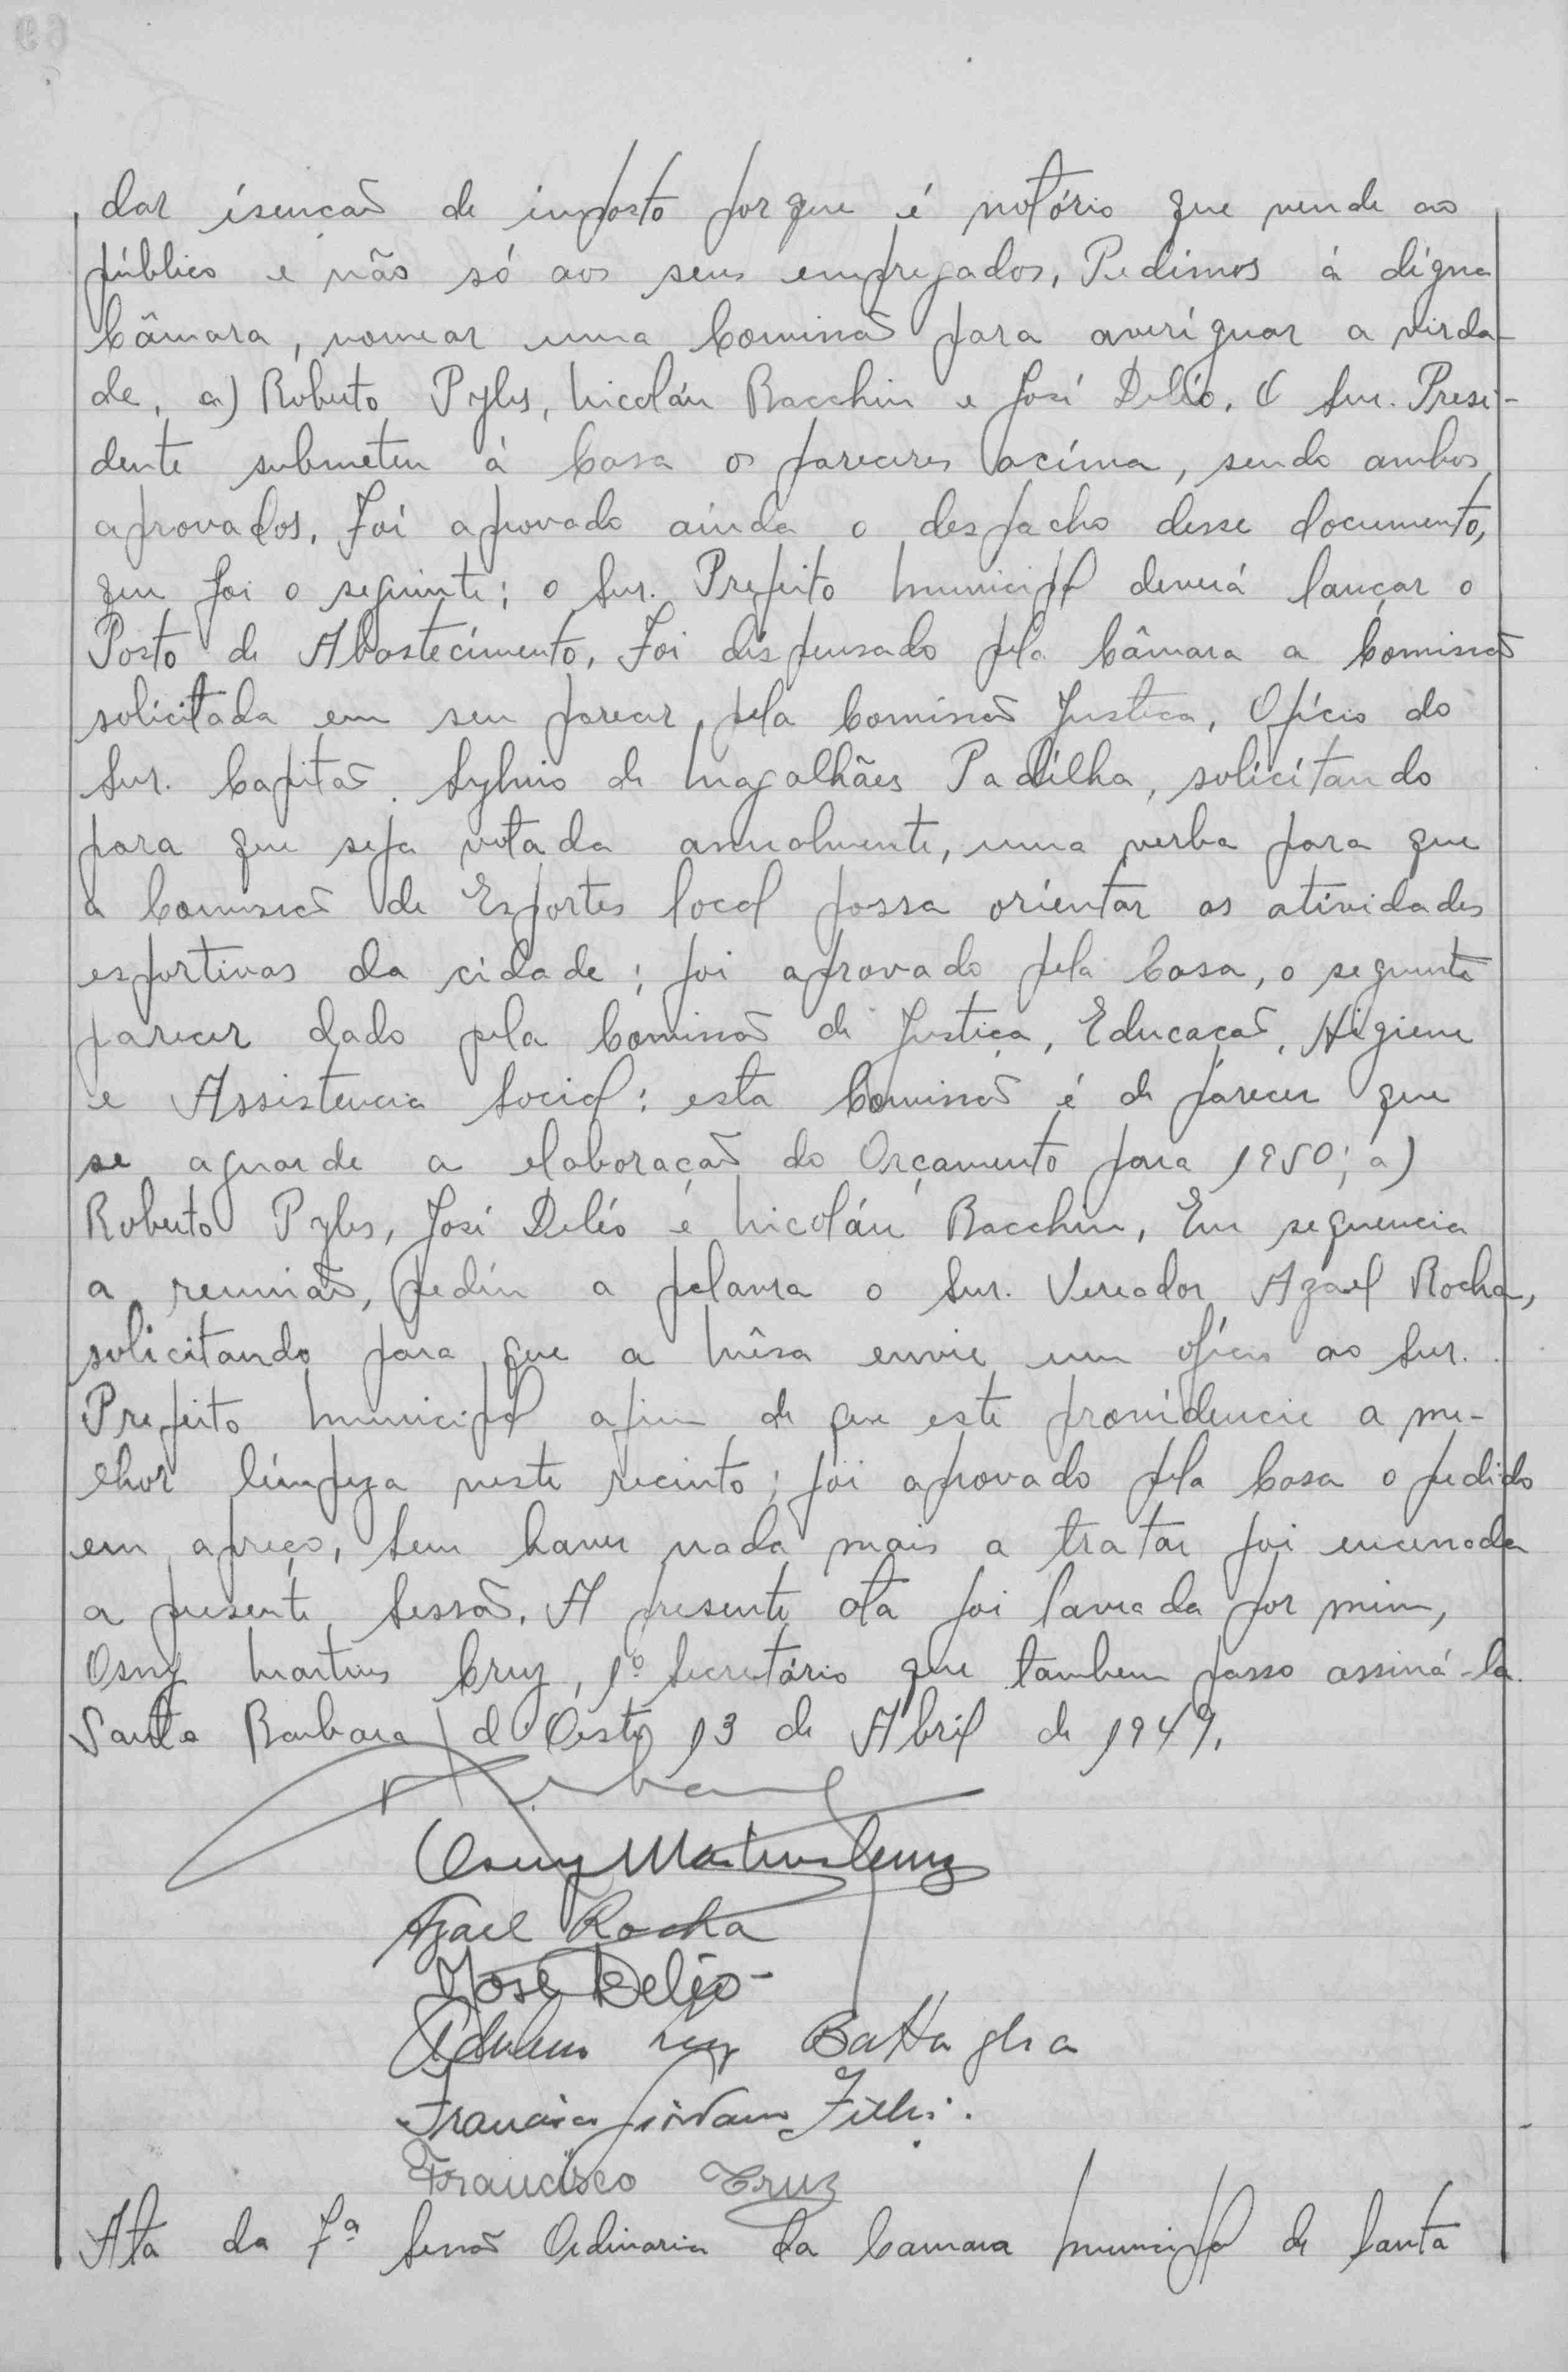 dar isenção de imposto porque é notório que vende ao
público e não só aos seus empregados. Pedimos á digna
Câmara, nomear uma Comissão para averiguar a verda-
de. a) Roberto Pyles, Nicoláu Bacchin e José Deléo. O Snr. Presi-
dente submeteu á Casa os pareceres acíma, sendo ambos
aprovados. Foi aprovado ainda o despacho desse documento,
que foi o seguinte: o Snr. Prefeito Municipal deverá lançar o
Posto de Abastecimento. Foi dispensado pela Câmara a Comissão
solicitada em seu parecer, pela Comissão Justiça. Ofício do
Snr. Capitão Sylvio de Magalhães Padilha, solicitando
para que seja votada anualmente, uma verba para que
a Comissão de Esportes local possa orientar as atividades
esportivas da cidade; foi aprovado pela Casa, o seguinte
parecer dado pela Comissão de Justiça, Educação, Higiene
e Assistencia Social: esta Comissão é de parecer que
se aguarde a elaboração do Orçamento para 1950; a)
Roberto Pyles, José Deléo e Nicoláu Bacchin. Em sequencia
a reunião, pediu a palavra o Snr. Vereador Azael Rocha,
solicitando para que a Mêsa envie um ofício ao Snr.
Prefeito Municipal afim de que este providencie a me-
lhor limpeza neste recinto; foi aprovado pela Casa o pedido
em apreço. Sem haver nada mais a tratar foi encerrada
a presente Sessão. A presente ata foi lavrada por mim,
Osny Martins Cruz, 1º Secretário que tambem passo assiná-la.
Santa Barbara d'Oeste, 13 de Abril de 1949.
Osny Martins Cruz
Azael Rocha
José Deléo
Luiz Battaglia
Francisco Giordano Filho.
Francisco Cruz
Ata da 7ª Sessão Ordinaria da Camara Municipal de Santa